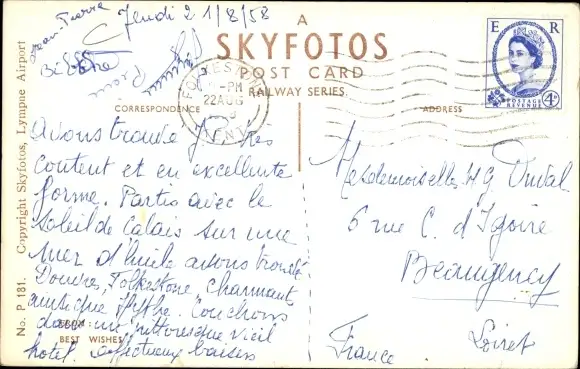 Jean-Pierre
Jeudi 21/8/58
A
SKYFOTOS
POST CARD
RAILWAY SERIES
CORRESPONDENCE
ADDRESS
E R
POSTAGE
REVENUE
4D
FOLKESTONE
-PM
22 AUG
KENT
Avons trouvé J. très
content et en excellente
forme. Partis avec le
soleil de Calais sur une
mer d'huile avons trouvé
Douvres, Folkestone, charmant,
ainsi que Hythe. Couchons
dans un pittoresque vieil
hotel. Affectueux baisers
BEST WISHES
Mesdemoiselles HG Duval
6 rue C. d'Igoire
Beaugency
Loiret
France
No. P 181. Copyright Skyfotos, Lympne Airport